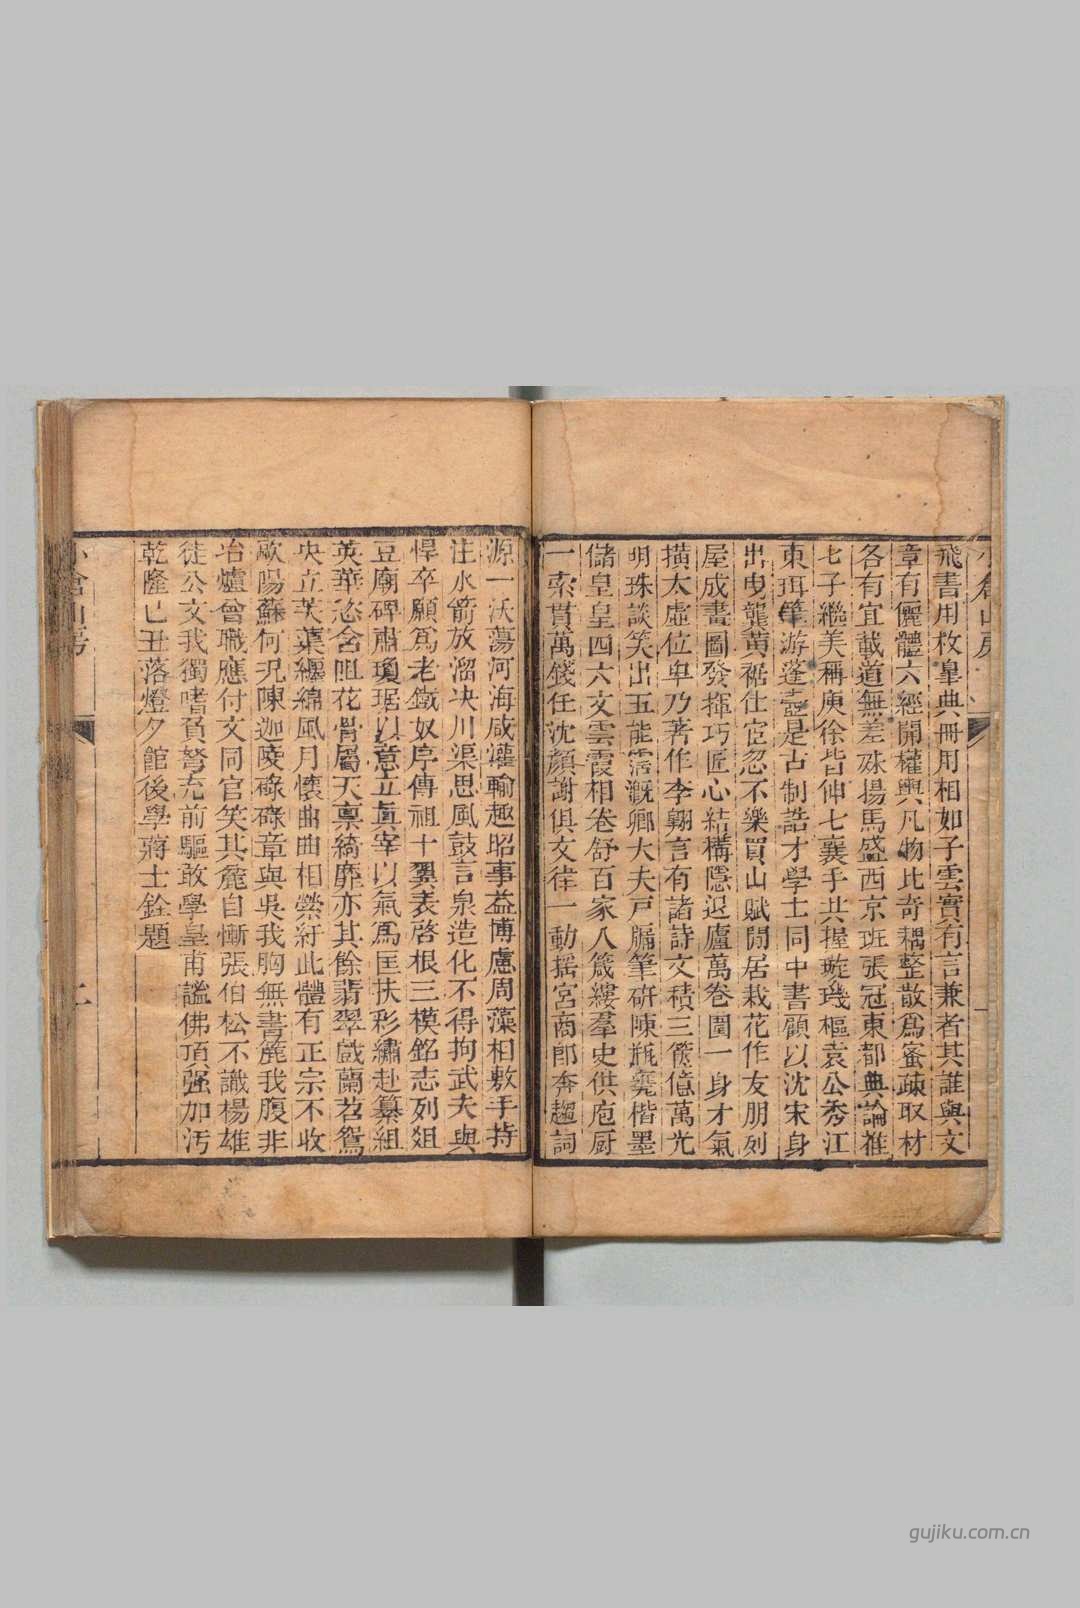 飛書用枚皇典冊用相如子雲實有言兼者其誰與文
章有儷體六經開權輿凡物比奇耦整散爲蜜疎取材
各有宜載道無差殊揚馬盛西京班張冠東都典論推
七子繼美稱庾徐皆伸七襄手共握璇璣樞袁公秀江
東珥筆游蓬壺是古制誥才學士同中書顧以沈宋身
出曳龔黃裾仕宦忽不樂買山賦閒居栽花作友朋列
屋成畫圖發揮巧匠心結構隱迟廬萬卷圍一身才氣
橫太虛位卑乃著作李翺言有諸詩文積三篋億萬光
明珠談笑出五能霑溉卿大夫戸牖筆硏陳瓶甕楷墨
儲皇皇四六文雲霞相卷舒百家八箴縷羣史供庖厨
一索貫萬錢任沈顏謝俱文律一動摇宮商郎奔趨詞
源一沃蕩河海咸灌輸趣昭事益博慮周藻相敷手持
注水箭放溜决川渠思風鼓言泉造化不得拘武夫與
悍卒願爲老鐵奴序傳祖十翼表啓根三模銘志列俎
豆廟碑肅瓊琚以意立眞宰以氣爲匡扶彩繡赴纂組
英華恣含咀花骨屬天禀綺靡亦其餘翡翠戲蘭苕鴛
央立芙蕖纏綿風月懷曲曲相縈紆此體有正宗不收
歐陽蘇何况陳迦陵碌碌章與吳我胸無書簏我腹非
冶爐曾職應付文同官笑其麄自慚張伯松不識楊雄
徒公文我獨嗜負弩充前驅敢學皇甫謐佛頂强加汚
乾隆己丑落燈夕館後學蔣士銓題
小倉山房
二
小倉山房
gujiku.com.cn